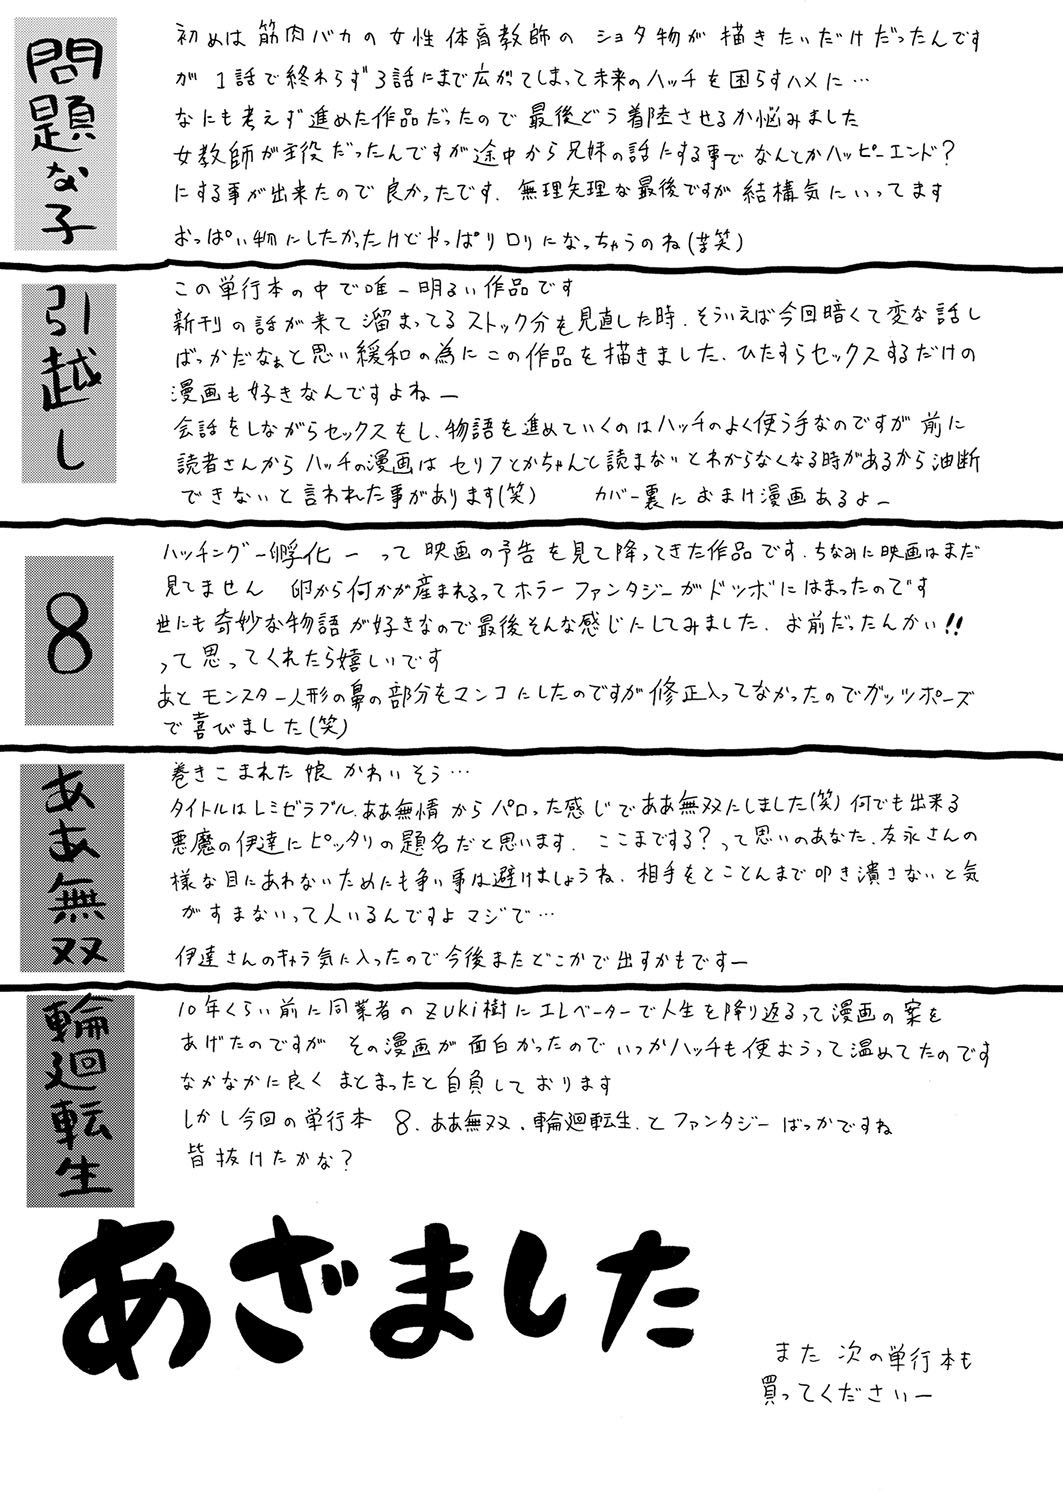 問題な子
初めは筋肉バカの女性体育教師の ショタ物が描きたいだけだったんです
が 1話で終わらず3話にまで広がてしまって未来のハッチを困らすハメに…
なにも考えず進めた作品だったので最後どう着陸させるか悩みました
女教師が主役だったんですが途中から兄妹の話にする事でなんとかハッピーエンド?
にする事が出来たので良かったです. 無理矢理な最後ですが 結構気にいってます
おっぱい物にしたかったけどやっぱりロリになっちゃうのね(苦笑)
引越し
この単行本の中で唯一明るい作品です
新刊の話が来て溜まってるストック分を見直した時、そういえば今回暗くて変な話し
ばっかだなぁと思い緩和の為にこの作品を描きました、ひたすらセックスするだけの
漫画も好きなんですよねー
会話をしながらセックスをし、物語を進めていくのはハッチのよく使う手なのですが 前に
読者さんから ハッチの漫画は セリフとかちゃんと読まないとわからなくなる時があるから油断
できないと言われた事があります(笑) カバー裏におまけ漫画あるよー
8
ハッチングー孵化ー って映画の予告を見て降ってきた作品です、ちなみに映画はまだ
見てません 卵から何かが産まれるってホラーファンタジーがドツボにはまったのです
世にも奇妙な物語が好きなので最後そんな感じにしてみました、お前だったんかい!!
って思ってくれたら嬉しいです
あとモンスター人形の鼻の部分をマンコにしたのですが修正入ってなかったのでガッツポーズ
で喜びました(笑)
ああ無双
巻きこまれた娘かわいそう…
タイトルはレミゼラブル、ああ無情からパロった感じでああ無双にしました(笑)何でも出来る
悪魔の伊達にピッタリの題名だと思います. ここまでする?って思いのあなた、友永さんの
様な目にあわないためにも争い事は避けましょうね、相手をとことんまで叩き潰さないと気
がすまないって人いるんですよマジで…
伊達さんのキャラ気に入ったので今後またどこかで出すかもですー
輪廻転生
10年くらい前に同業者のZUKI樹にエレベーターで人生を降り返るって漫画の案を
あげたのですが その漫画が面白かったのでいつかハッチも使おうって温めてたのです
なかなかに良くまとまったと自負しております
しかし今回の単行本 8、ああ無双、輪廻転生、とファンタジーばっかですね
皆抜けたかな?
あざました
また次の単行本も
買ってくださいー